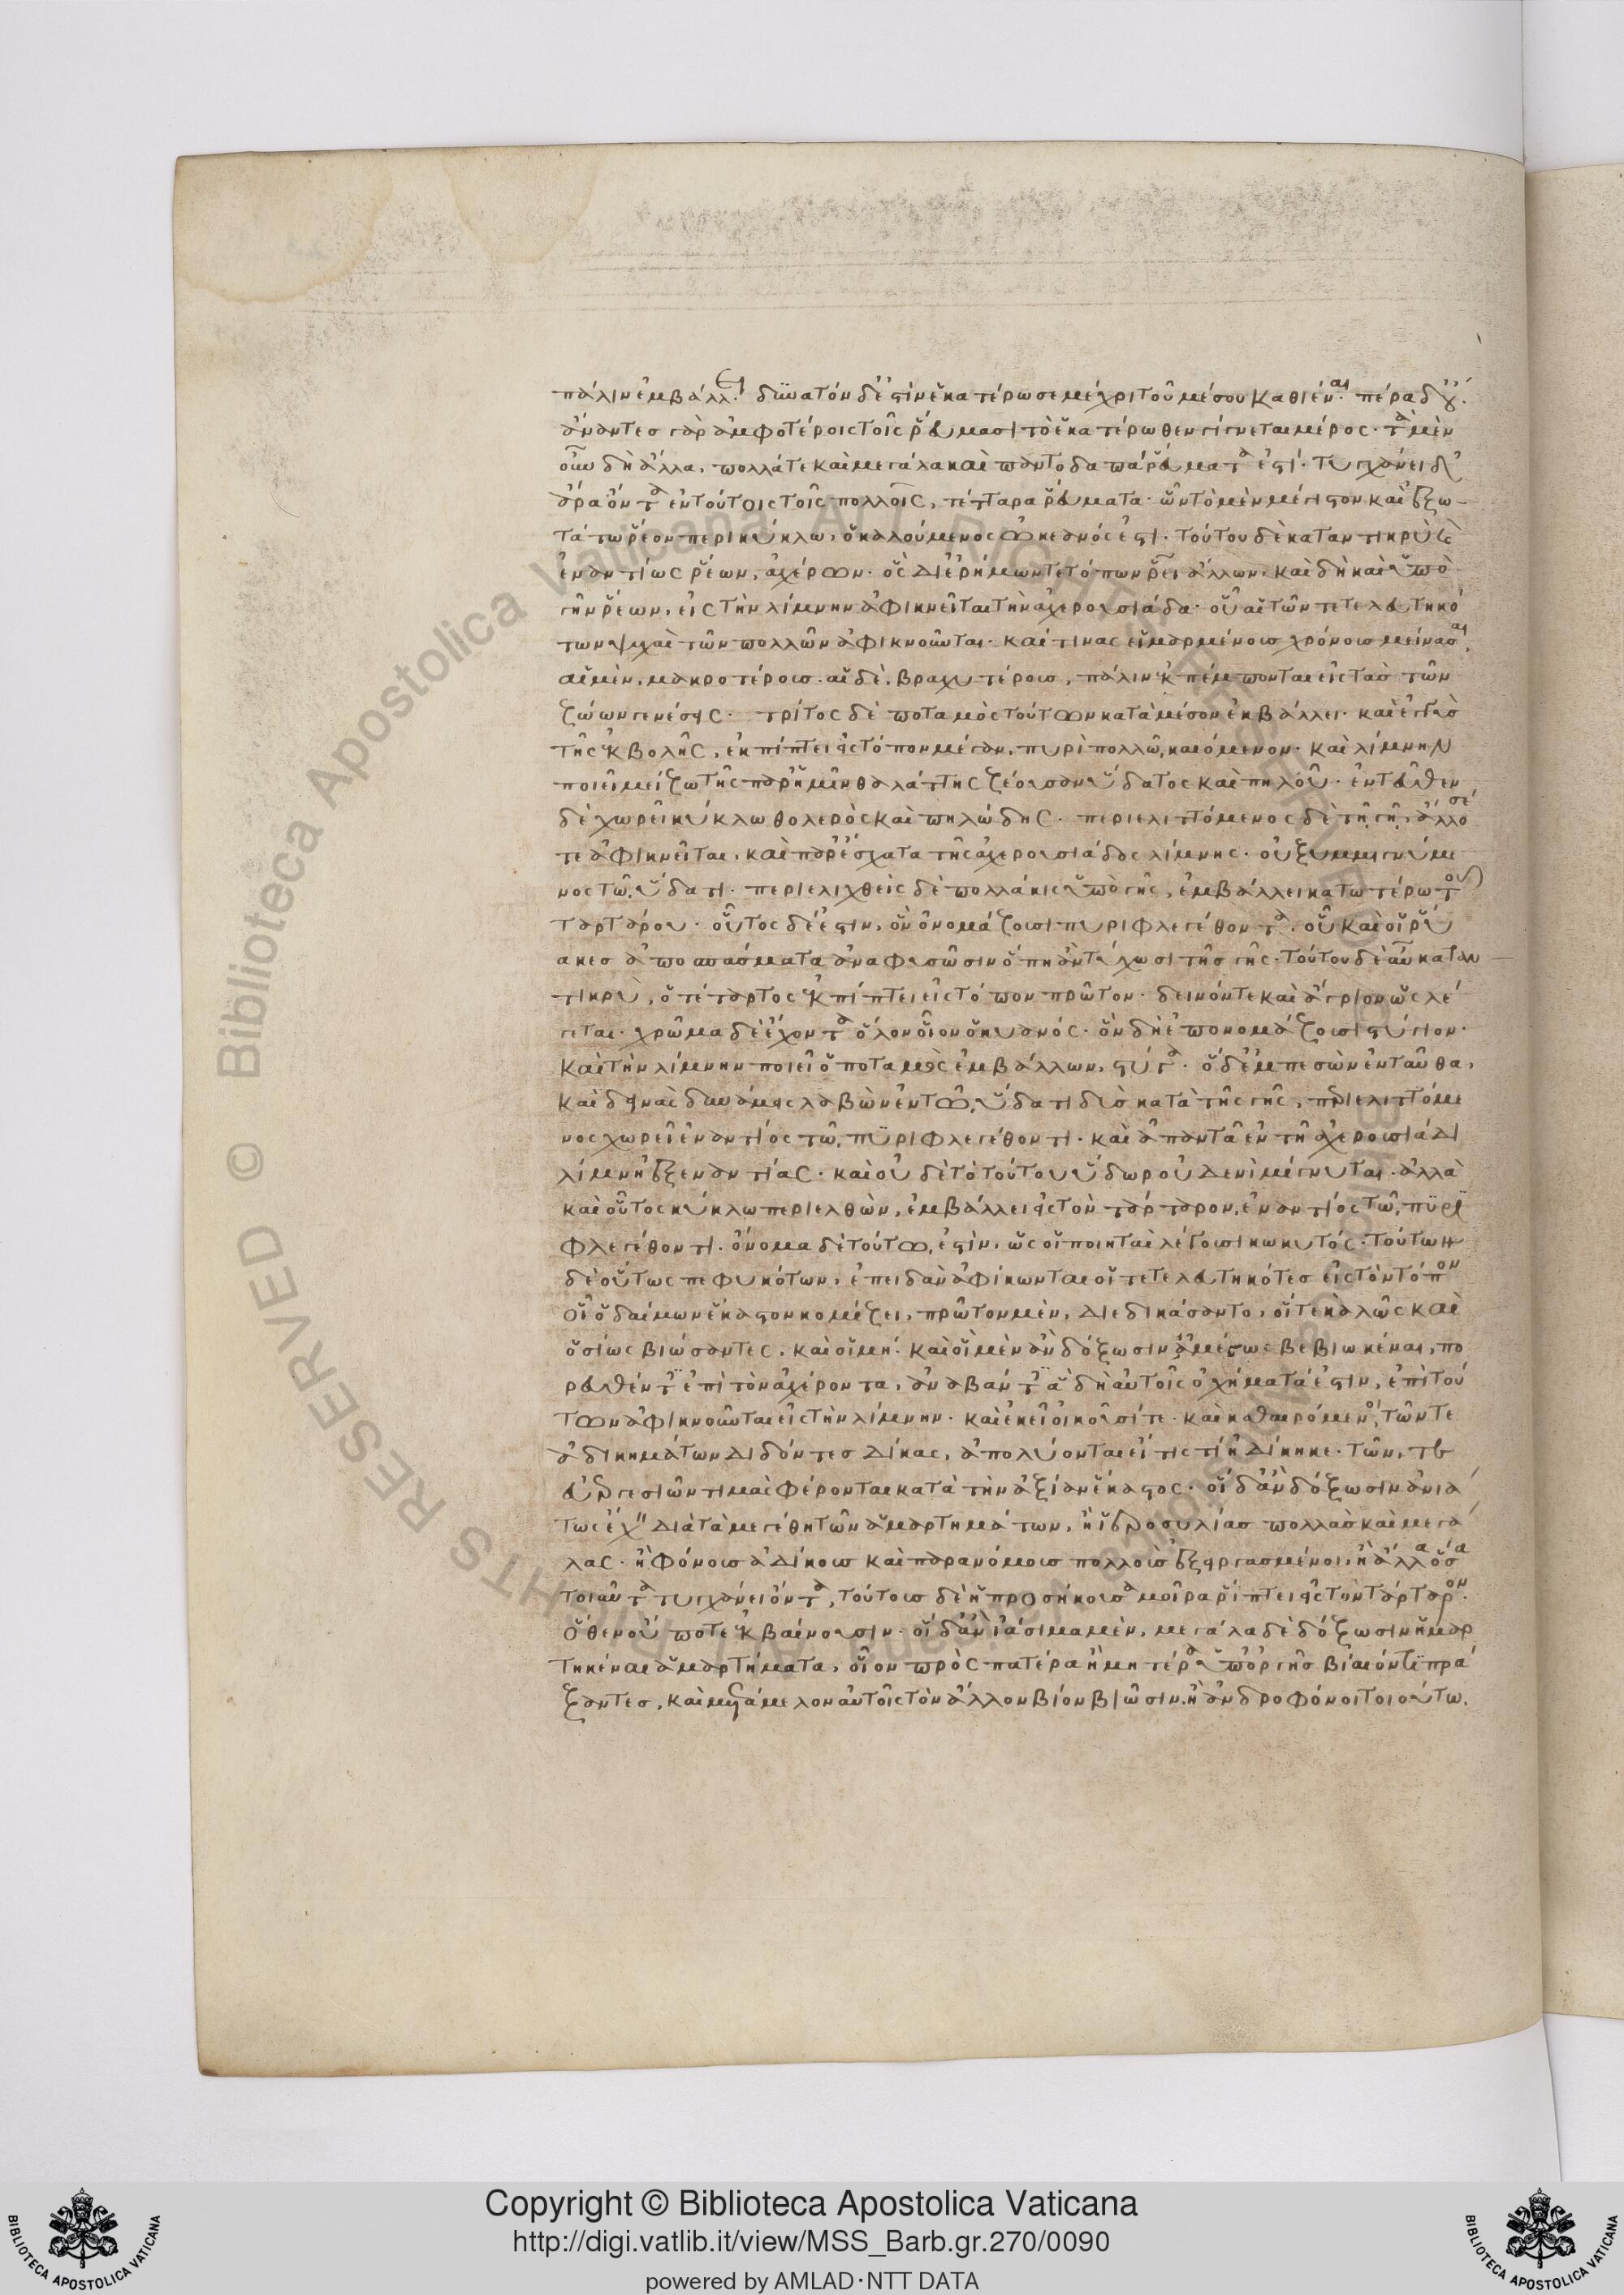 πάλιν ἐμβάλλει. δυνατὸν δ' ἐστὶν ἑκατέρωσε μέχρι τοῦ μέσου καθιέναι. πέρα δ' οὔ.
ἄναντες γὰρ ἀμφοτέροις τοῖς ῥεύμασι τὸ ἑκατέρωθεν γίγνεται μέρος. τὰ μὲν
οὖν δὴ ἄλλα, πολλά τε καὶ μεγάλα καὶ παντοδαπὰ ῥεύματά ἐστι. τυγχάνει δ'
ἄρα ὄντα ἐν τούτοις τοῖς πολλοῖς, τέτταρα ῥεύματα. ὧν τὸ μὲν μέγιστον καὶ ἐξω-
τάτω ῥέον περὶ κύκλω, ὁ καλούμενος ὠκεανός ἐστι. τούτου δὲ καταντικρὺ καὶ
ἐναντίως ῥέων, ἀχέρων. ὃς δι' ἐρήμων τε τόπων ῥεῖ ἄλλων. καὶ δὴ καὶ ὑπὸ
γῆν ῥέων, εἰς τὴν λίμνην ἀφικνεῖται τὴν ἀχερουσιάδα. οὗ αἱ τῶν τετελευτηκό
των ψυχαὶ τῶν πολλῶν ἀφικνοῦνται. καί τινας εἱμαρμένους χρόνους μείνασαι,
αἱ μὲν, μακροτέρους. αἱ δὲ, βραχυτέρους, πάλιν ἐκπέμπονται εἰς τὰς τῶν
ζώων γενέσεις. τρίτος δὲ ποταμὸς τούτων κατὰ μέσον ἐκβάλλει. καὶ ἐγγὺς
τῆς ἐκβολῆς, ἐκπίπτει εἰς τόπον μέγαν, πυρὶ πολλῶ, καιόμενον. καὶ λίμνην
ποιεῖ μείζω τῆς παρ' ἡμῖν θαλάττης ζέουσαν ὕδατος καὶ πηλοῦ. ἐντεῦθεν
δὲ χωρεῖ κύκλω θολερὸς καὶ πηλώδης. περιελιττόμενος δὲ τῆ, γῆ, ἄλλοσέ
τε ἀφικνεῖται, καὶ παρ' ἔσχατα τῆς ἀχερουσιάδος λίμνης. οὐ ξυμμιγνύμε
νος τῶ, ὕδατι. περιελιχθεὶς δὲ πολλάκις ὑπὸ γῆς, ἐμβάλλει κατωτέρω τοῦ
ταρτάρου. οὗτος δέ ἐστιν, ὃν ὀνομάζουσι πυριφλεγέθοντα. οὗ καὶ οἱ ῥύ
ακες ἀποσπάσματα ἀναφυσῶσιν ὅπη ἂν τύχωσι τῆς γῆς. τούτου δὲ αὖ καταν
τικρὺ, ὁ τέταρτος ἐκπίπτει εἰς τόπον πρῶτον. δεινόν τε καὶ ἄγριον ὡς λέ
γεται. χρῶμα δὲ ἔχοντα ὅλον οἷον ὁ κυανός. ὃν δὴ ἐπονομάζουσι στύγιον.
καὶ τὴν λίμνην ποιεῖ ὁ ποταμὸς ἐμβάλλων, στύγα. ὁ δ' ἐμπεσὼν ἐνταῦθα,
καὶ δεινὰς δυνάμεις λαβὼν ἐν τῶ, ὕδατι δὺς κατὰ τῆς γῆς, περιελιττόμε
νος χωρεῖ ἐναντίος τῶ, πυριφλεγέθοντι. καὶ ἀπαντᾶ ἐν τῆ ἀχερουσιάδι
λίμνη ἐξ ἐναντίας. καὶ οὐδὲ τὸ τούτου ὕδωρ οὐδενὶ μίγνυται. ἀλλὰ
καὶ οὗτος κύκλω περιελθὼν, ἐμβάλλει εἰς τὸν τάρταρον, ἐναντίος τῶ, πυρι
φλεγέθοντι. ὄνομα δὲ τούτω, ἐστὶν, ὡς οἱ ποιηταὶ λέγουσι κωκυτός. τούτων
δὲ οὕτως πεφυκότων, ἐπειδὰν ἀφίκωνται οἱ τετελευτηκότες εἰς τὸν τόπον
οἷ ὁ δαίμων ἕκαστον κομίζει, πρῶτον μὲν, διεδικάσαντο, οἵ τε καλῶς καὶ
ὁσίως βιώσαντες, καὶ οἱ μή. καὶ οἱ μὲν ἂν δόξωσιν μέσως βεβιωκέναι, πο
ρευθέντες ἐπὶ τὸν ἀχέροντα, ἀναβάντες ἃ δὴ αὐτοῖς ὀχήματά ἐστιν, ἐπὶ τού
των ἀφικνοῦνται εἰς τὴν λίμνην. καὶ ἐκεῖ οἰκοῦσί τε. καὶ καθαιρόμενοι, τῶν τε
ἀδικημάτων διδόντες δίκας, ἀπολύονται εἴ τίς τι ἠδίκηκε. τῶν, τε
εὐεργεσιῶν τιμὰς φέρονται κατὰ τὴν ἀξίαν ἕκαστος. οἳ δ' ἂν δόξωσιν ἀνιά
τως ἔχειν διὰ τὰ μεγέθη τῶν ἁμαρτημάτων, ἢ ἱεροσυλίας πολλὰς καὶ μεγά
λας. ἢ φόνους ἀδίκους καὶ παρανόμους πολλοὺς ἐξειργασμένοι, ἢ ἄλλα ὅσα
τοιαῦτα τυγχάνει ὄντα, τούτους δὲ ἡ προσήκουσα μοῖρα ῥίπτει εἰς τὸν τάρταρον.
ὅθεν οὔποτε ἐκβαίνουσιν. οἳ δ' ἂν ἰάσιμα μὲν, μεγάλα δὲ δόξωσιν ἡμαρ
τηκέναι ἁμαρτήματα, οἷον πρὸς πατέρα ἢ μητέρα ὑπ' ὀργῆς βίαιόν τι πρά
ξαντες, καὶ μεταμέλον αὐτοῖς τὸν ἄλλον βίον βιῶσιν. ἢ ἀνδροφόνοι τοιούτω.
Biblioteca Apostolica Vaticana
ALL RIGHTS RESERVED ©
Copyright © Biblioteca Apostolica Vaticana
http://digi.vatlib.it/view/MSS_Barb.gr.270/0090
powered by AMLAD·NTT DATA
BIBLIOTECA APOSTOLICA VATICANA
BIBLIOTECA APOSTOLICA VATICANA